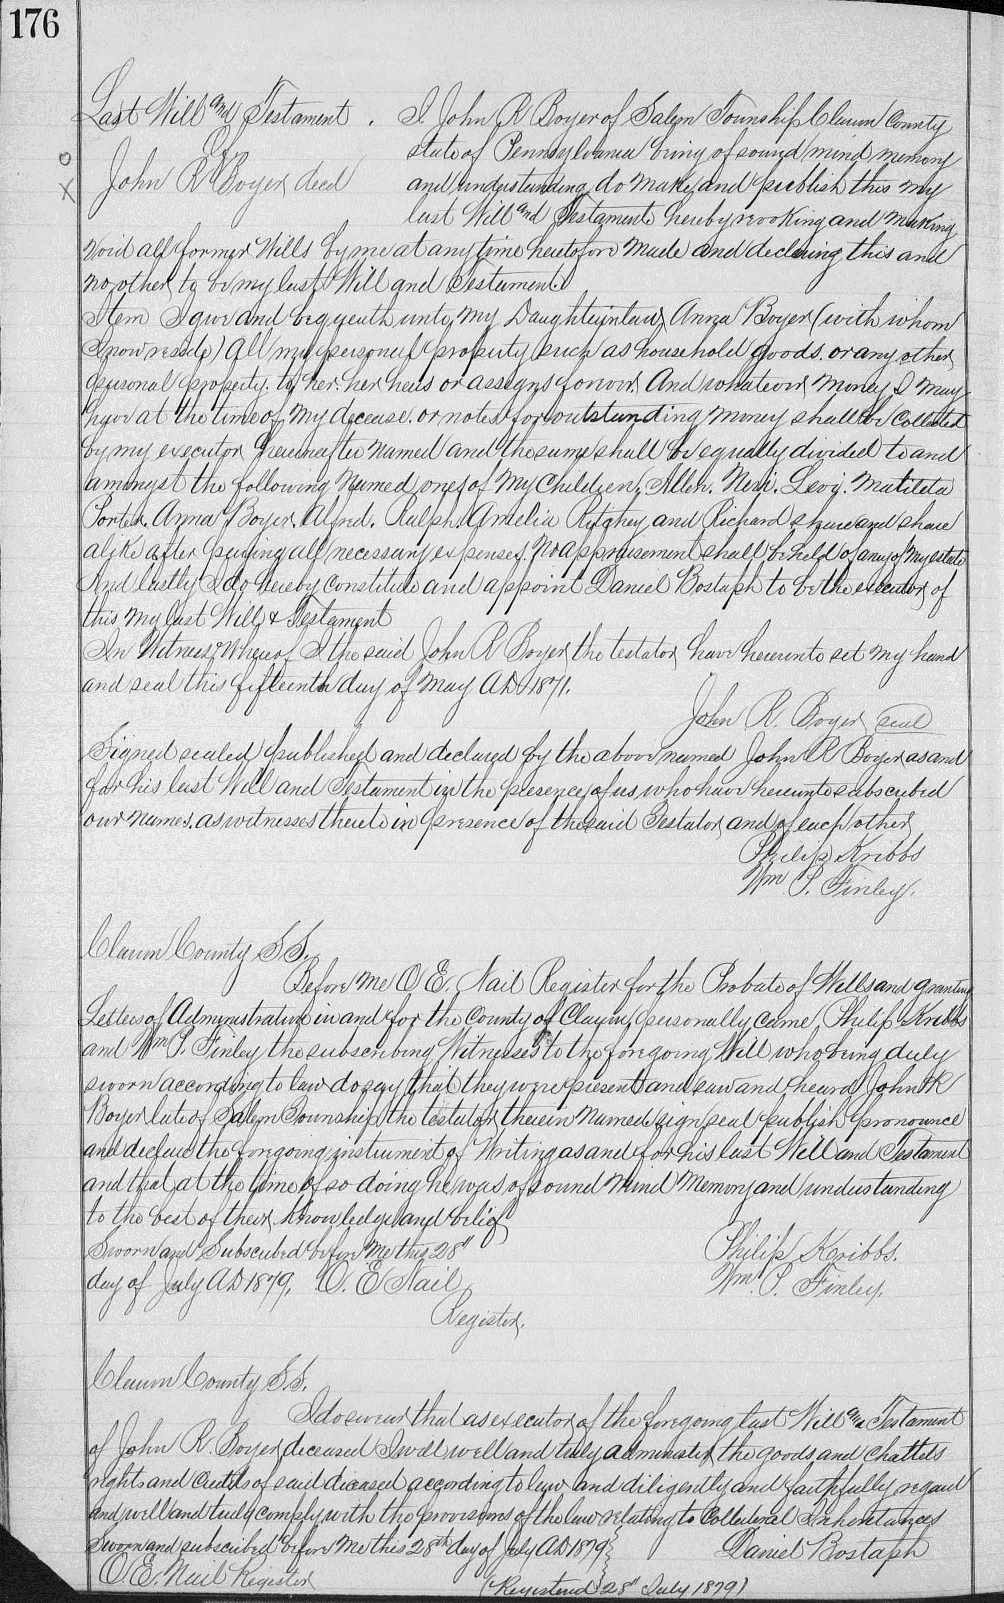 176
Last Will and Testament .
Of
John R Boyer decd
I John R Boyer of Salem Township Clarion County
state of Pennsylvania being of sound mind memory
and understanding do make and publish this my
last Will and Testament hereby revoking and making
void all former Wills by me at any time heretofore made and declaring this and
no other to be my last Will and Testament.
Item I give and bequeath unto my Daughterinlaw Anna Boyer (with whom
I now reside) All my personal property such as household goods. or any other
personal property. to her. her heirs or assigns forever. And whatever money I may
have at the time of my decease. or notes for outstanding money shall be collected
by my executor hereinafter named and the same shall be equally divided to and
amongst the following named ones of my children, Allen. Neri. Levi. Matilda
Porter. Anna Boyer. Alfred. Ralph. Amelia and Richard share and share
alike after paying all necessary expenses. No appraisement shall be held of any of my estate
And lastly I do hereby constitute and appoint Daniel Bostaph to be the executor of
this my last Will & Testament
In Witness Whereof I the said John R Boyer the testator have hereunto set my hand
and seal this fifteenth day of May AD 1871.
John R. Boyer seal
Signed sealed published and declared by the above named John R Boyer as and
for his last Will and Testament in the presence of us who have hereunto subscribed
our names. as witnesses thereto in presence of the said Testator and of each other
Philip Kribbs
Wm P. Finley.
Clarion County S.S.
Before me O E. Nail Register for the Probate of Wills and granting
Letters of Administration in and for the County of Clarion personally came Philip Kribbs
and Wm P. Finley the subscribing Witnesses to the foregoing Will who being duly
sworn according to law do say that they were present and saw and heard John R
Boyer late of Salem Township the testator therein named sign seal publish pronounce
and declare the foregoing instrument of Writing as and for his last Will and Testament
and that at the time of so doing he was of sound mind memory and understanding
to the best of their knowledge and belief
Sworn and Subscribed before me this 28"
day of July AD 1879. O. E Nail
Register.
Philip Kribbs.
Wm. P. Finley.
Clarion County S.S.
I do swear that as executor of the foregoing last Will and Testament
of John R. Boyer deceased I will well and truly administer the goods and chattels
rights and credits of said deceased according to law and diligently and faithfully regard
and well and truly comply with the provisions of the law relating to Collateral Inheritances
Sworn and subscribed before me this 28th day of July AD 1879
Daniel Bostaph
O E. Nail Register
(Registered 28" July 1879)